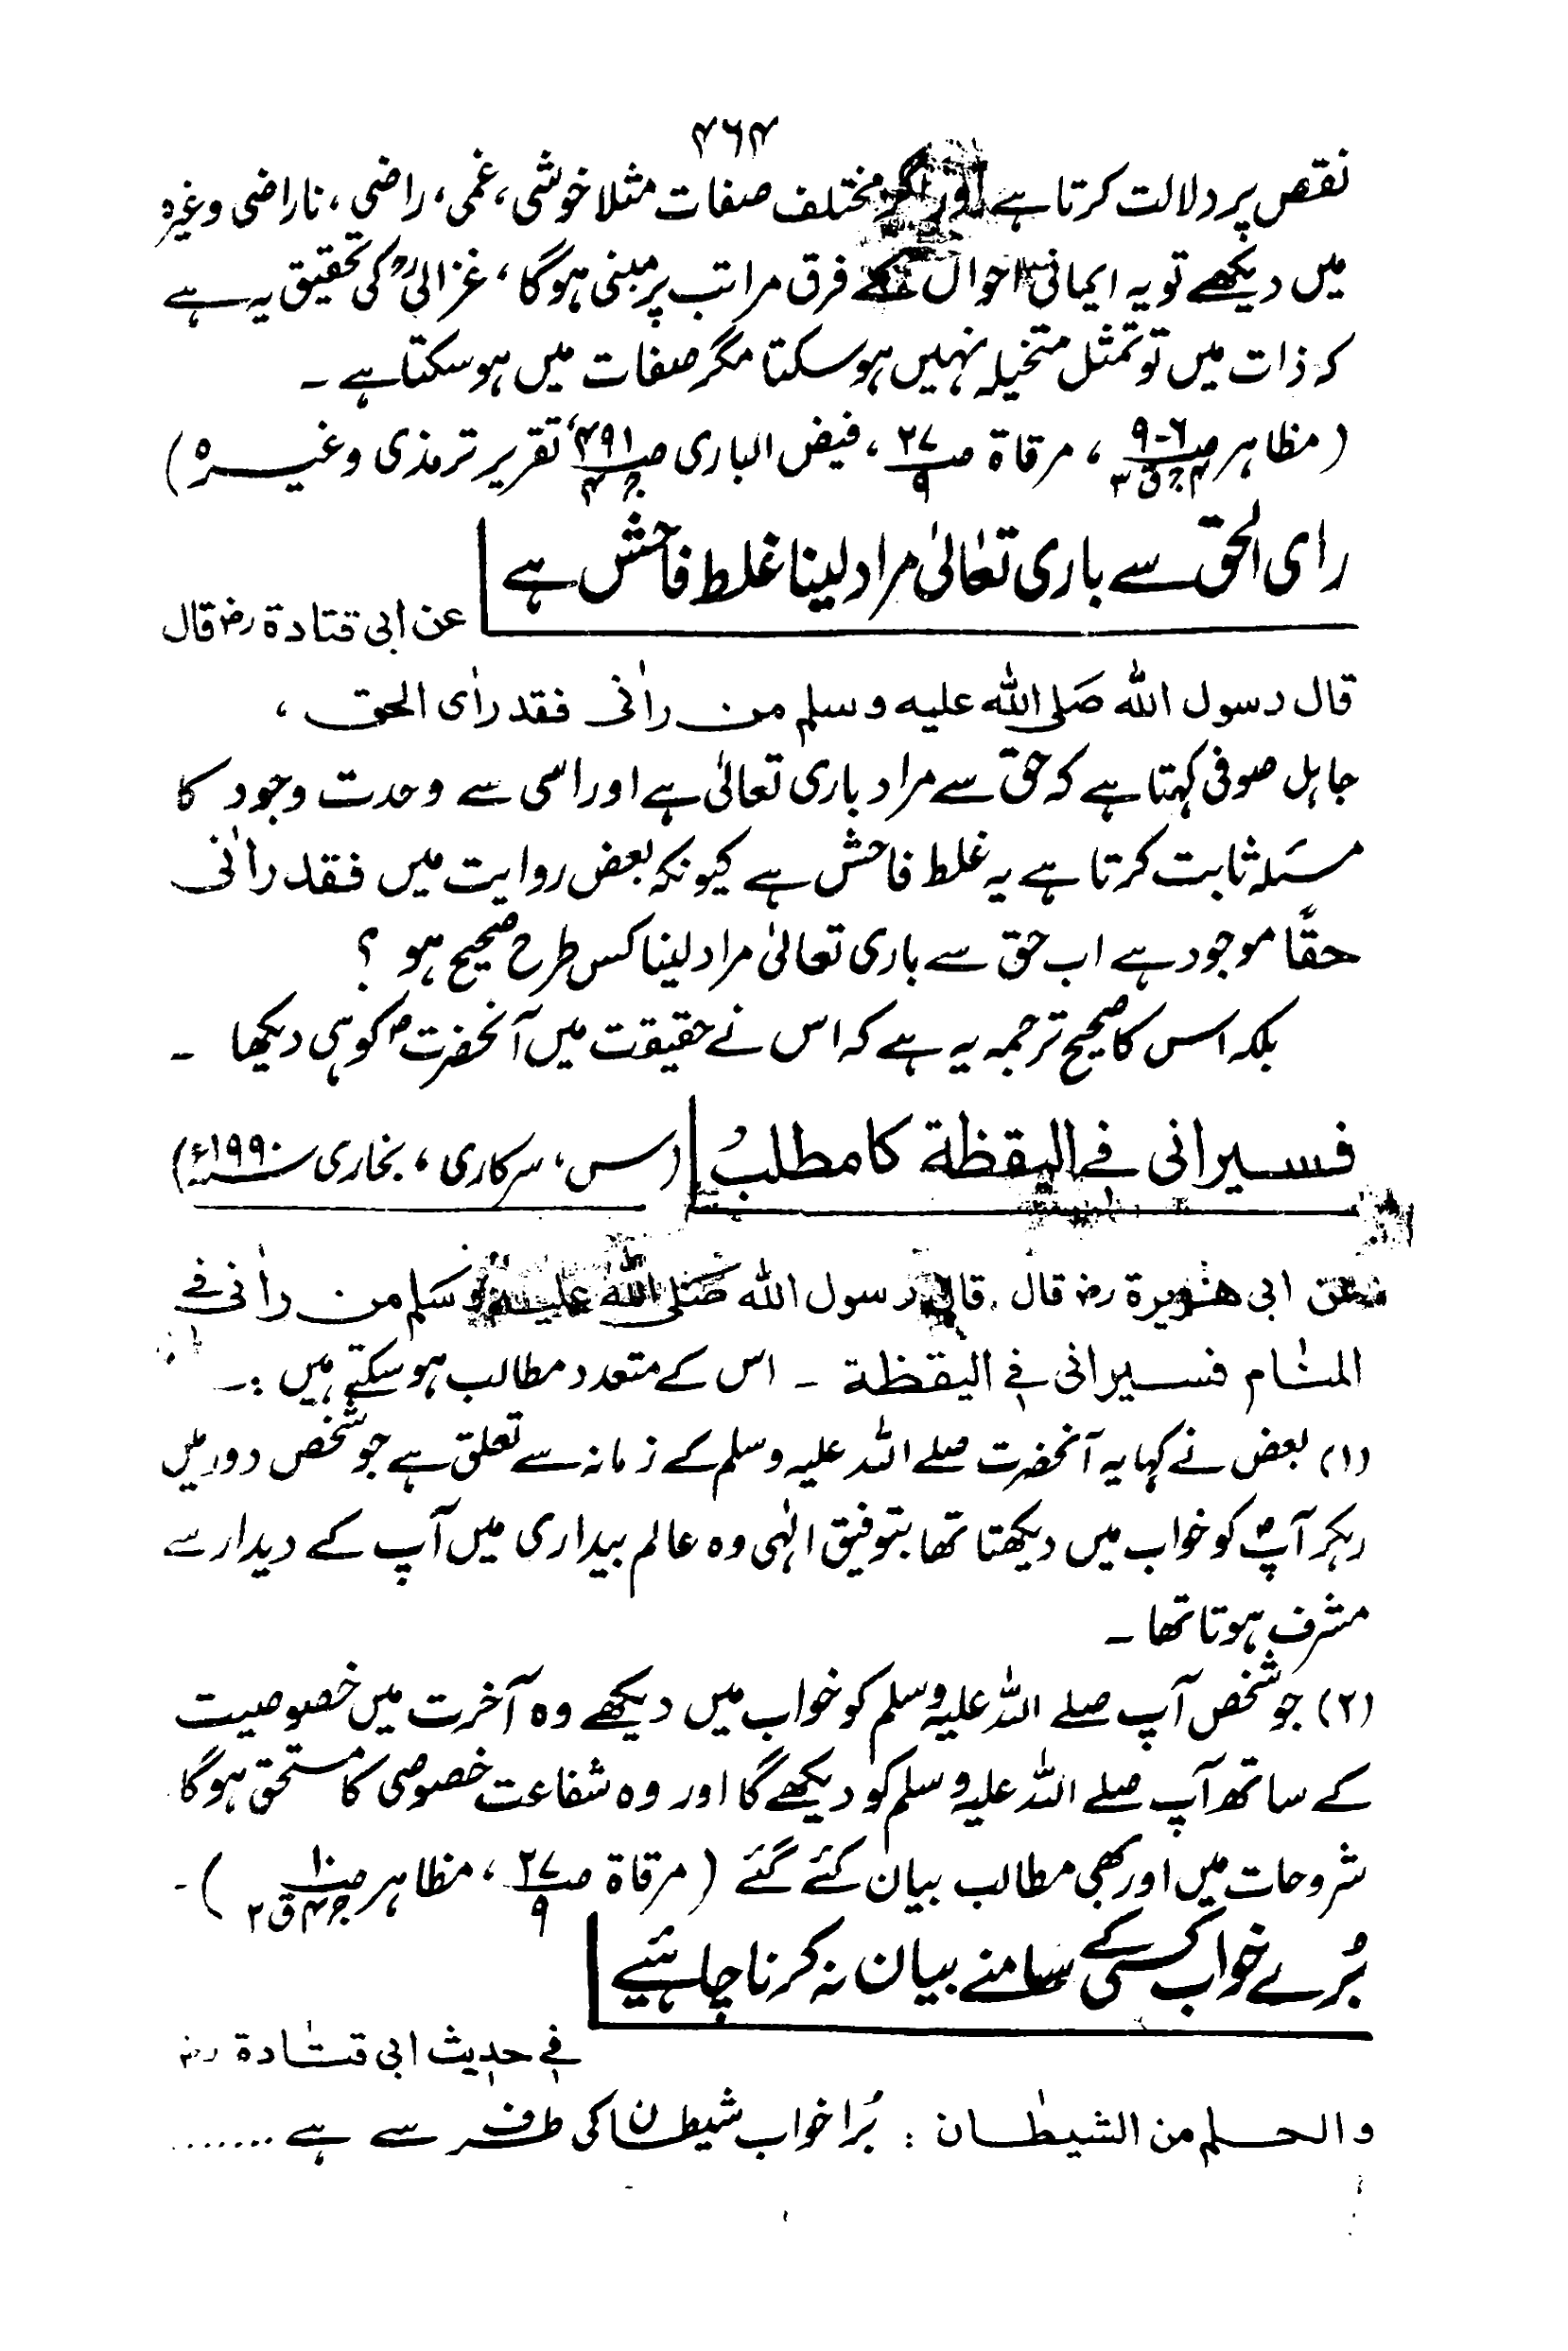 ۴۶۴
نقص پر دلالت کرتا ہے اور اگر مختلف صفات مثلا خوشی، غمی، راضی، ناراضی وغیرہ
میں دیکھے تو یہ ایمانی احوال کے فرق مراتب پر مبنی ہوگا، غزالیؒ کی تحقیق یہ ہے
کہ ذات میں تو تمثل متخیلہ نہیں ہوسکتا مگر صفات میں ہوسکتا ہے ۔
(مظاہر صـ ۶-۹ / ج۴ ق۳ ، مرقاة صـ ۲۷ / ۹ ، فیض الباری صـ ۴۹۱ / ج۴ ، تقریر ترمذی وغیرہ)
رای الحق سے باری تعالیٰ مراد لینا غلط فاحش ہے
عن ابی قتادة رض قال
قال رسول الله صلی الله علیه وسلم من راٰنی فقد راٰی الحق ،
جاہل صوفی کہتا ہے کہ حق سے مراد باری تعالیٰ ہے اور اسی سے وحدت وجود کا
مسئلہ ثابت کرتا ہے یہ غلط فاحش ہے کیونکہ بعض روایت میں فقد راٰنی
حقًّا موجود ہے اب حق سے باری تعالیٰ مراد لینا کس طرح صحیح ہو ؟
بلکہ اس کا صحیح ترجمہ یہ ہے کہ اس نے حقیقت میں آنحضرتؐ کو ہی دیکھا ۔
فسیرانی فے الیقظة کا مطلب (س، سرکاری، بخاری سنہ ۱۹۹۰ء)
عن ابی هریرة رض قال قال رسول الله صلی الله علیه وسلم من راٰنی فے
المنام فسیرانی فے الیقظة ۔ اس کے متعدد مطالب ہوسکتے ہیں :۔
(۱) بعض نے کہا یہ آنحضرت صلے اللہ علیہ وسلم کے زمانہ سے تعلق ہے جو شخص دور میں
رہکر آپؐ کو خواب میں دیکھتا تھا بتوفیق الٰہی وہ عالم بیداری میں آپ کے دیدار سے
مشرف ہوتا تھا ۔
(۲) جو شخص آپ صلے اللہ علیہ وسلم کو خواب میں دیکھے وہ آخرت میں خصوصیت
کے ساتھ آپ صلے اللہ علیہ وسلم کو دیکھے گا اور وہ شفاعت خصوصی کا مستحق ہوگا
شروحات میں اور بھی مطالب بیان کئے گئے (مرقاة صـ ۲۷ / ۹ ، مظاہر صـ ۱۰ / ج۴ ق۲ )۔
بُرے خواب کسی کے سامنے بیان نہ کرنا چاہئیے
فے حدیث ابی قتادة رض
والحلم من الشیطان : بُرا خواب شیطان کی طرف سے ہے .......